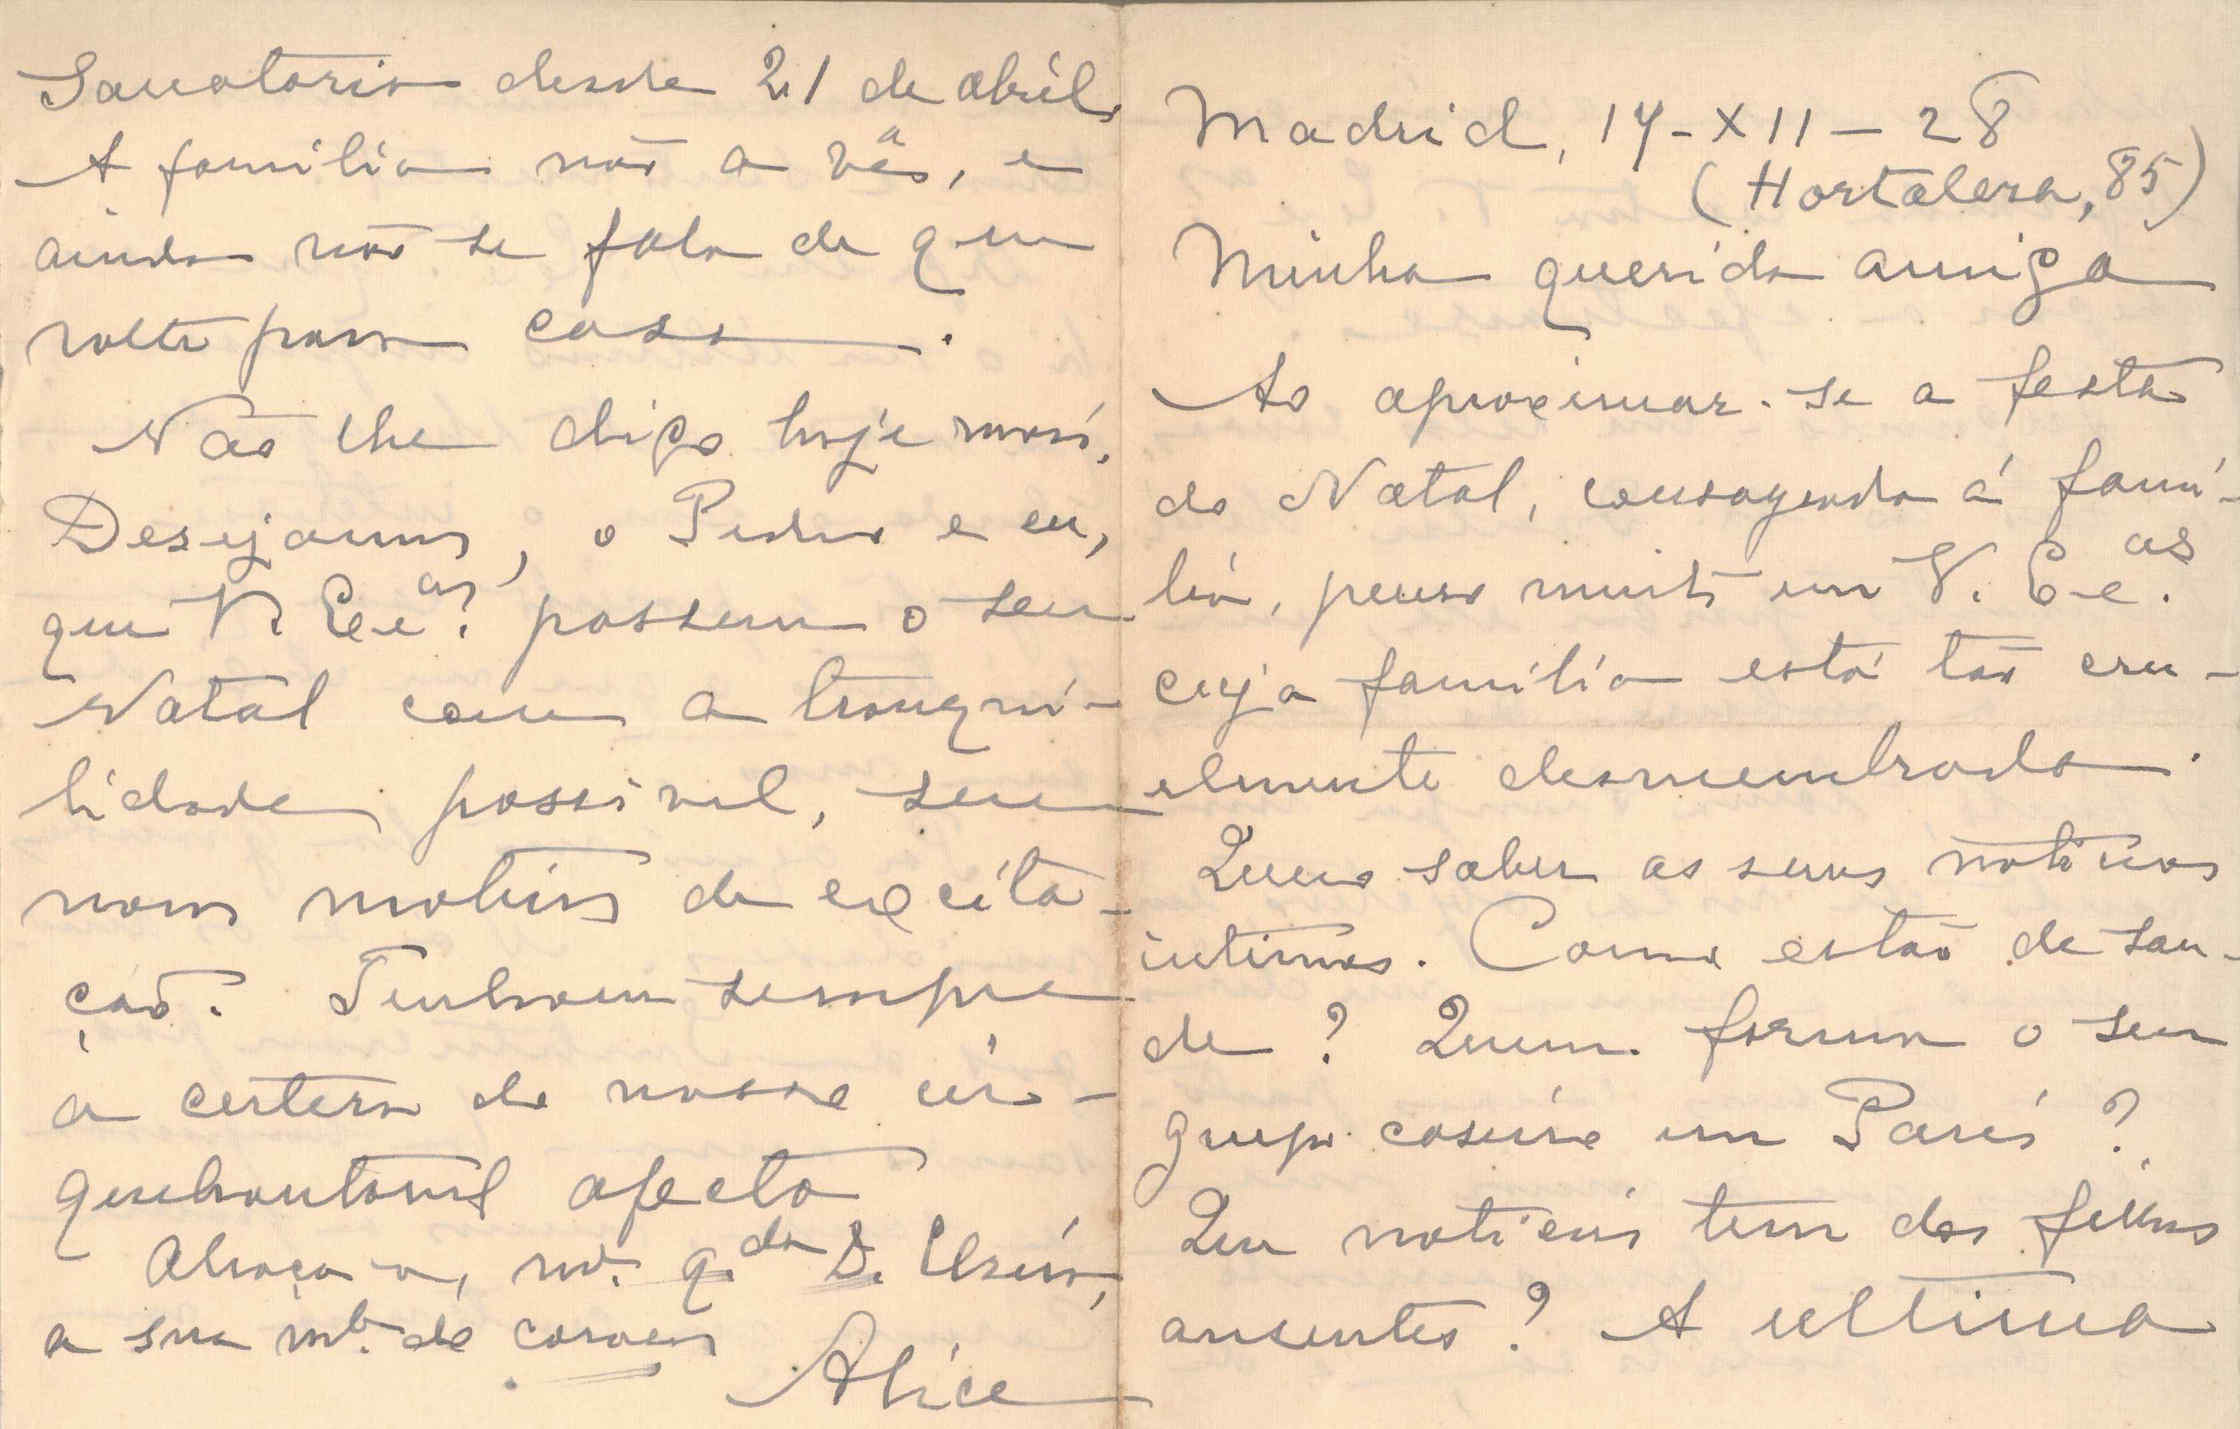 Madrid, 14-XII-28
(Hortaleza, 85)
Minha querida amiga
Ao aproximar-se a festa
do Natal, consagrada á fami-
lia, penso muito em V. Ex.as
cuja familia está tão cru-
elmente desmembrada.
Quero saber as suas noticias
intimas. Como estão de sau-
de? Quem forma o seu
grupo caseiro em Paris?
Que noticias tem dos filhos
ausentes? A ultima
Sanatorio desde 21 de abril.
A familia não a, e
ainda não se fala de que
volte para casa.
Não lhe digo hoje mais.
Desejamos, o Pedro e eu,
que V. Ex.as passem o seu
Natal com a tranqui-
lidade possivel, sem
novos motivos de excita-
ção. Tenham sempre
a certeza do nosso in-
quebrantavel afecto
Abraça-a, m.to q.da D. Elzira,
a sua m.to de coração
Alice